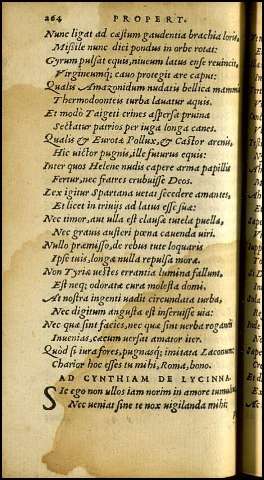 264 PROPERT.
Nunc ligat ad cæstum gaudentia brachia loris,
Missile nunc disci pondus in orbe rotat:
Gyrum pulsat equis, niueum latus ense reuincit,
Virgineumq; cauo protegit ære caput:
Qualis Amazonidum nudatis bellica mammis
Thermodoonteis turba lauatur aquis.
Et modò Taigeti crines aspersa pruina
Sectatur patrios per iuga longa canes.
Qualis & Eurotæ Pollux, & Castor arenis,
Hic uictor pugnis, ille futurus equis:
Inter quos Helene nudis capere arma papillis
Fertur, nec fratres erubuisse Deos.
Lex igitur Spartana uetat secedere amantes,
Et licet in triuijs ad latus esse suæ:
Nec timor, aut ulla est clausæ tutela puellæ,
Nec grauis austeri pœna cauenda uiri.
Nullo præmisso, de rebus tute loquaris
Ipse tuis, longæ nulla repulsa moræ.
Non Tyriæ uestes errantia lumina fallunt,
Est neq; odoratæ cura molesta domi.
At nostra ingenti uadit circundata turba,
Nec digitum angusta est inseruisse uia:
Nec quæ sint facies, nec quæ sint uerba rogandi
Inuenias, cæcum uersat amator iter.
Quòd si iura fores, pugnasq; imitata Laconum:
Charior hoc esses tu mihi, Roma, bono.
AD CYNTHIAM DE LYCINNA.
SIc ego non ullos iam norim in amore tumultus
Nec ueniat sine te nox uigilanda mihi: